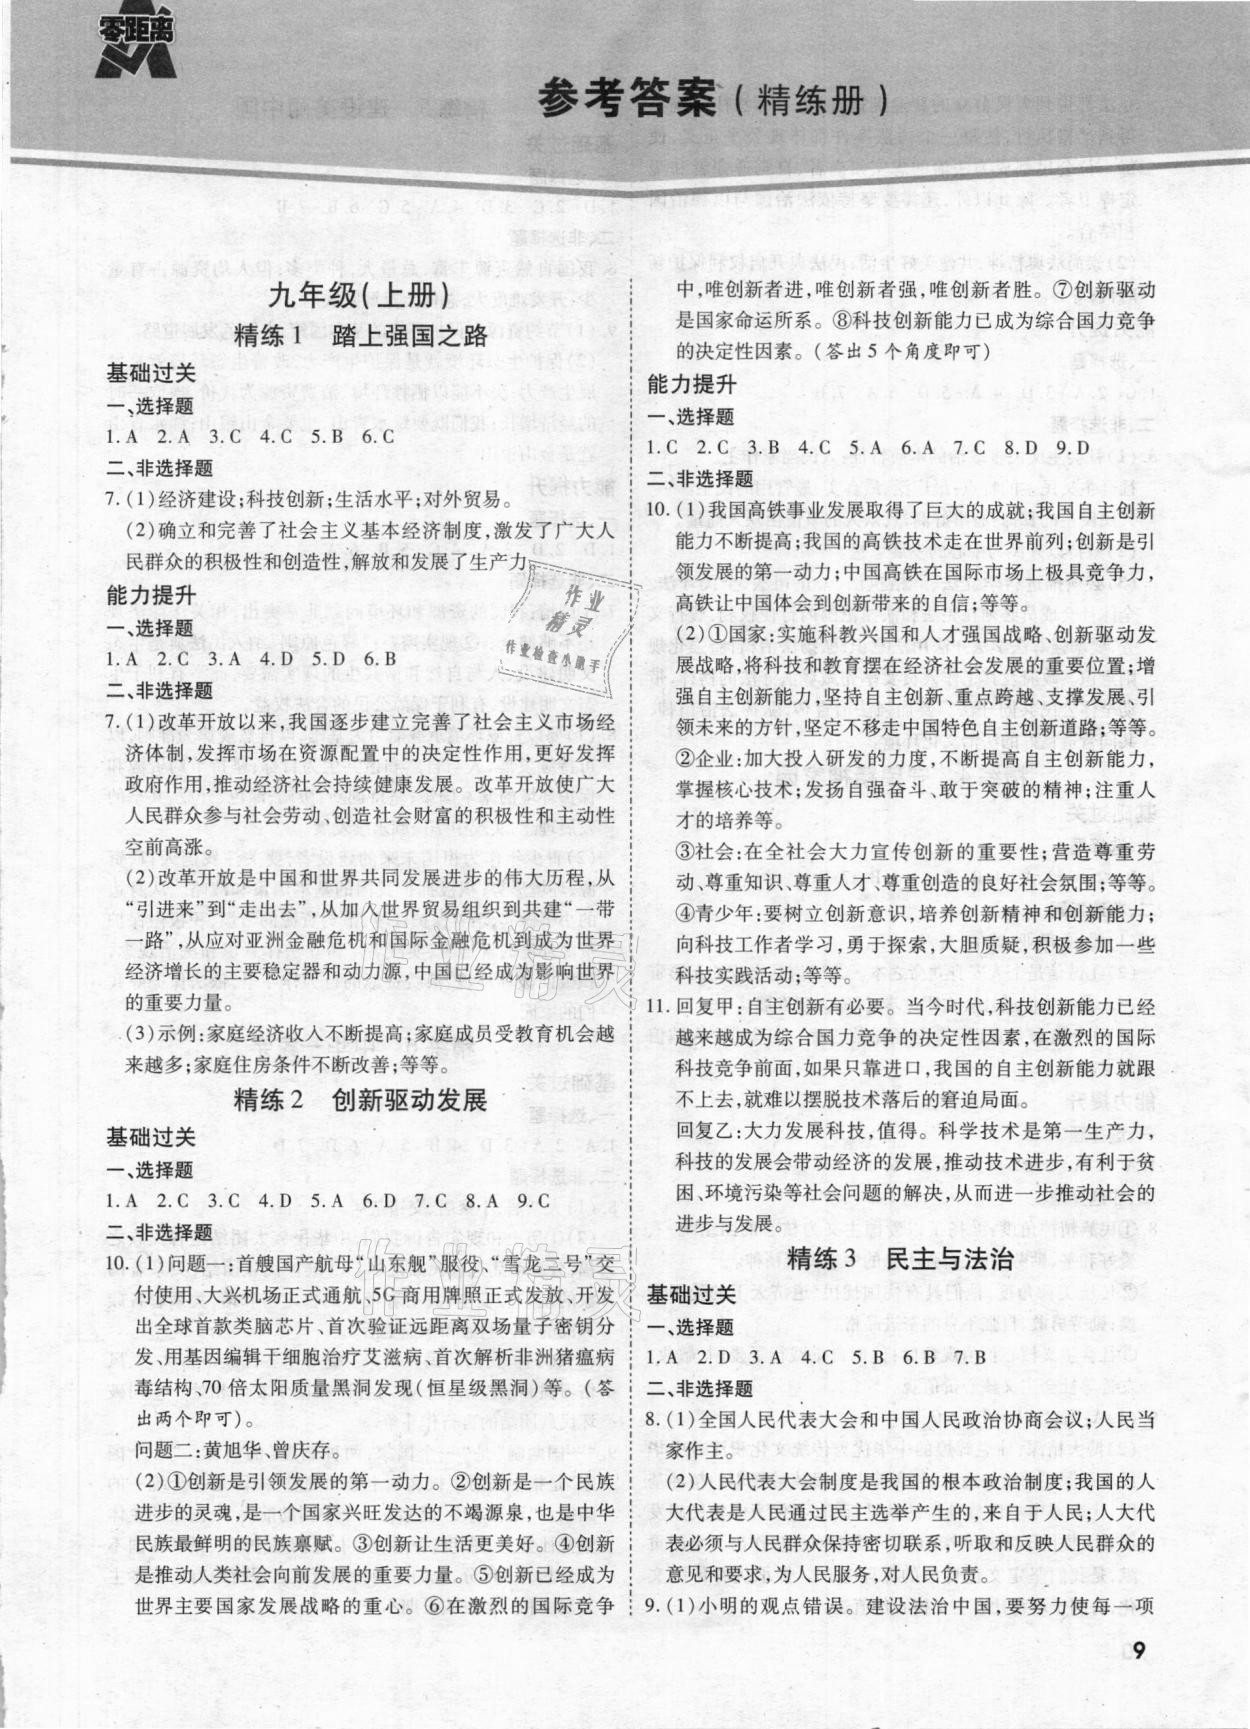 零距离
参考答案(精练册)
九年级(上册)
精练1 踏上强国之路
基础过关
一、选择题
1.A 2.A 3.C 4.C 5.B 6.C
二、非选择题
7.(1)经济建设;科技创新;生活水平;对外贸易。
(2)确立和完善了社会主义基本经济制度,激发了广大人
民群众的积极性和创造性,解放和发展了生产力。
能力提升
一、选择题
1.A 2.C 3.A 4.D 5.D 6.B
二、非选择题
7.(1)改革开放以来,我国逐步建立完善了社会主义市场经
济体制,发挥市场在资源配置中的决定性作用,更好发挥
政府作用,推动经济社会持续健康发展。改革开放使广大
人民群众参与社会劳动、创造社会财富的积极性和主动性
空前高涨。
(2)改革开放是中国和世界共同发展进步的伟大历程,从
“引进来”到“走出去”,从加入世界贸易组织到共建“一带
一路”,从应对亚洲金融危机和国际金融危机到成为世界
经济增长的主要稳定器和动力源,中国已经成为影响世界
的重要力量。
(3)示例:家庭经济收人不断提高;家庭成员受教育机会越
来越多;家庭住房条件不断改善;等等。
精练2 创新驱动发展
基础过关
一、选择题
1.A 2.C 3.C 4.D 5.A 6.D 7.C 8.A 9.C
二、非选择题
10.(1)问题一:首艘国产航母“山东舰”服役、“雪龙二号”交
付使用、大兴机场正式通航、5G商用牌照正式发放、开发
出全球首款类脑芯片、首次验证远距离双场量子密钥分
发、用基因编辑干细胞治疗艾滋病、首次解析非洲猪瘟病
毒结构、70倍太阳质量黑洞发现(恒星级黑洞)等。(答
出两个即可)。
问题二:黄旭华、曾庆存。
(2)①创新是引领发展的第一动力。②创新是一个民族
进步的灵魂,是一个国家兴旺发达的不竭源泉,也是中华
民族最鲜明的民族禀赋。③创新让生活更美好。④创新
是推动人类社会向前发展的重要力量。⑤创新已经成为
世界主要国家发展战略的重心。⑥在激烈的国际竞争
中,唯创新者进,唯创新者强,唯创新者胜。⑦创新驱动
是国家命运所系。⑧科技创新能力已成为综合国力竞争
的决定性因素。(答出5个角度即可)
能力提升
一、选择题
1.C 2.C 3.B 4.C 5.A 6.A 7.C 8.D 9.D
二、非选择题
10.(1)我国高铁事业发展取得了巨大的成就;我国自主创新
能力不断提高;我国的高铁技术走在世界前列;创新是引
领发展的第一动力;中国高铁在国际市场上极具竞争力,
高铁让中国体会到创新带来的自信;等等。
(2)①国家:实施科教兴国和人才强国战略、创新驱动发
展战略,将科技和教育摆在经济社会发展的重要位置;增
强自主创新能力,坚持自主创新、重点跨越、支撑发展、引
领未来的方针,坚定不移走中国特色自主创新道路;等等。
②企业:加大投入研发的力度,不断提高自主创新能力,
掌握核心技术;发扬自强奋斗、敢于突破的精神;注重人
才的培养等。
③社会:在全社会大力宣传创新的重要性;营造尊重劳
动、尊重知识、尊重人才、尊重创造的良好社会氛围;等等。
④青少年:要树立创新意识,培养创新精神和创新能力;
向科技工作者学习,勇于探索,大胆质疑,积极参加一些
科技实践活动;等等。
11.回复甲:自主创新有必要。当今时代,科技创新能力已经
越来越成为综合国力竞争的决定性因素,在激烈的国际
科技竞争前面,如果只靠进口,我国的自主创新能力就跟
不上去,就难以摆脱技术落后的窘迫局面。
回复乙:大力发展科技,值得。科学技术是第一生产力,
科技的发展会带动经济的发展,推动技术进步,有利于贫
困、环境污染等社会问题的解决,从而进一步推动社会的
进步与发展。
精练3 民主与法治
基础过关
一、选择题
1.A 2.D 3.A 4.C 5.B 6.B 7.B
二、非选择题
8.(1)全国人民代表大会和中国人民政治协商会议;人民当
家作主。
(2)人民代表大会制度是我国的根本政治制度;我国的人
大代表是人民通过民主选举产生的,来自于人民;人大代
表必须与人民群众保持密切联系,听取和反映人民群众的
意见和要求,为人民服务,对人民负责。
9.(1)小明的观点错误。建设法治中国,要努力使每一项
9
作业
精灵
作业检查小助手
作业精灵
作业精灵